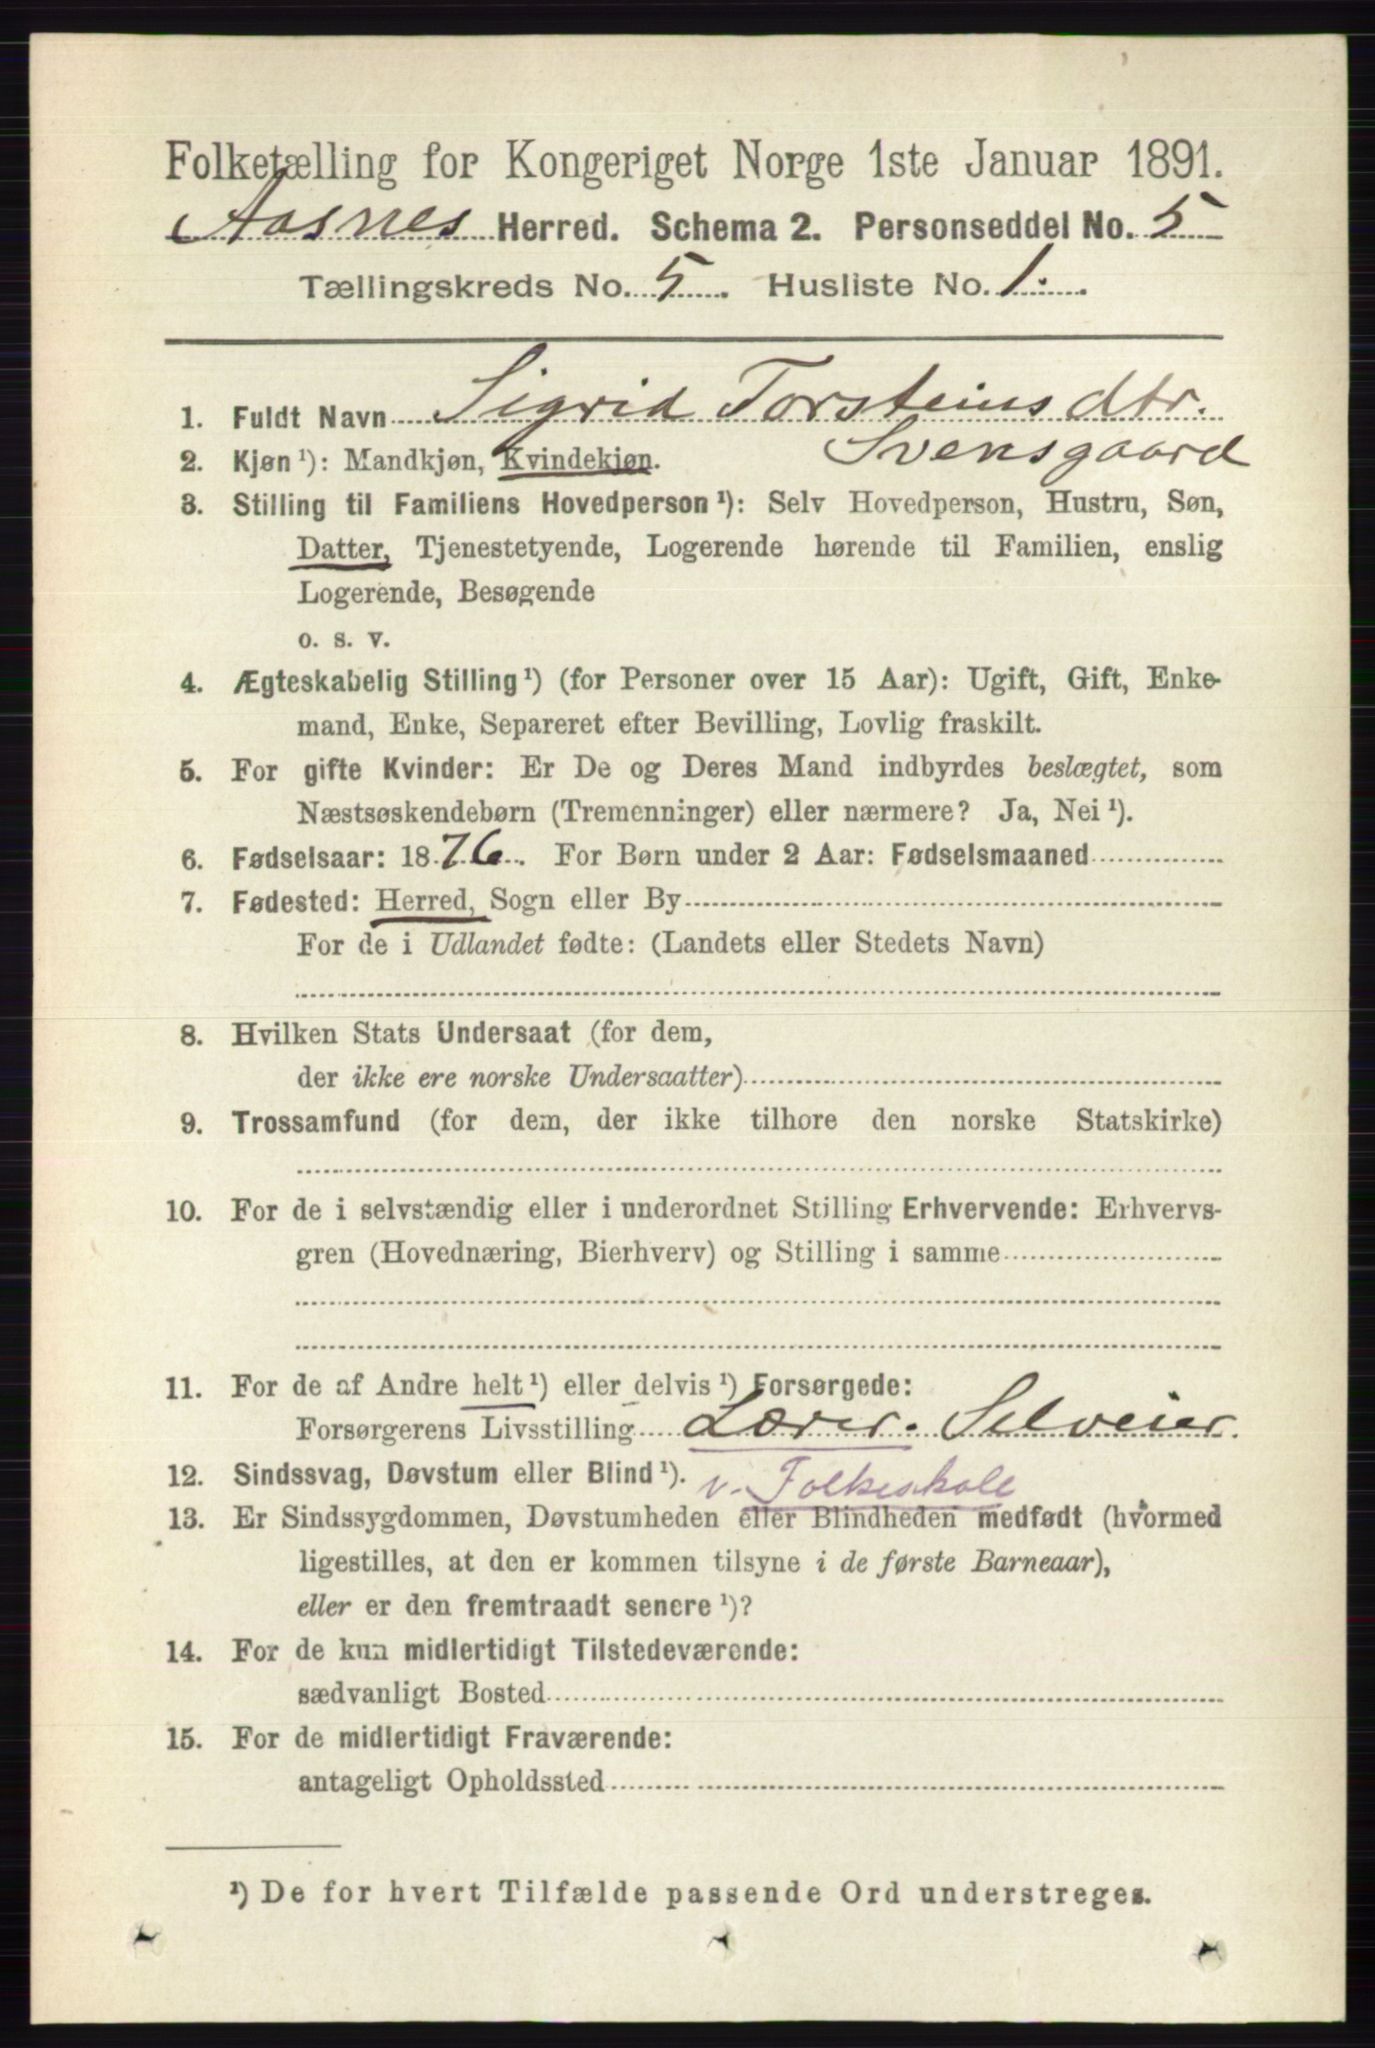 Folketælling for Kongeriget Norge 1ste Januar 1891.
Aasnes Herred. Schema 2. Personseddel No. 5
Tællingskreds No. 5. Husliste No. 1.
1. Fuldt Navn Sigrid Torsteinsdtr.
Svensgaard
2. Kjøn ¹): Mandkjøn, Kvindekjøn.
3. Stilling til Familiens Hovedperson ¹): Selv Hovedperson, Hustru, Søn,
Datter, Tjenestetyende, Logerende hørende til Familien, enslig
Logerende, Besøgende
o. s. v.
4. Ægteskabelig Stilling ¹) (for Personer over 15 Aar): Ugift, Gift, Enke-
mand, Enke, Separeret efter Bevilling, Lovlig fraskilt.
5. For gifte Kvinder: Er De og Deres Mand indbyrdes beslægtet, som
Næstsøskendebørn (Tremenninger) eller nærmere? Ja, Nei ¹).
6. Fødselsaar: 1876. For Børn under 2 Aar: Fødselsmaaned
7. Fødested: Herred, Sogn eller By
For de i Udlandet fødte: (Landets eller Stedets Navn)
8. Hvilken Stats Undersaat (for dem,
der ikke ere norske Undersaatter)
9. Trossamfund (for dem, der ikke tilhøre den norske Statskirke)
10. For de i selvstændig eller i underordnet Stilling Erhvervende: Erhvervs-
gren (Hovednæring, Bierhverv) og Stilling i samme
11. For de af Andre helt ¹) eller delvis ¹) Forsørgede:
Forsørgerens Livsstilling Lærer. Selveier.
12. Sindssvag, Døvstum eller Blind ¹). v. Folkeskole
13. Er Sindssygdommen, Døvstumheden eller Blindheden medfødt (hvormed
ligestilles, at den er kommen tilsyne i de første Barneaar),
eller er den fremtraadt senere ¹)?
14. For de kun midlertidigt Tilstedeværende:
sædvanligt Bosted
15. For de midlertidigt Fraværende:
antageligt Opholdssted
¹) De for hvert Tilfælde passende Ord understreges.